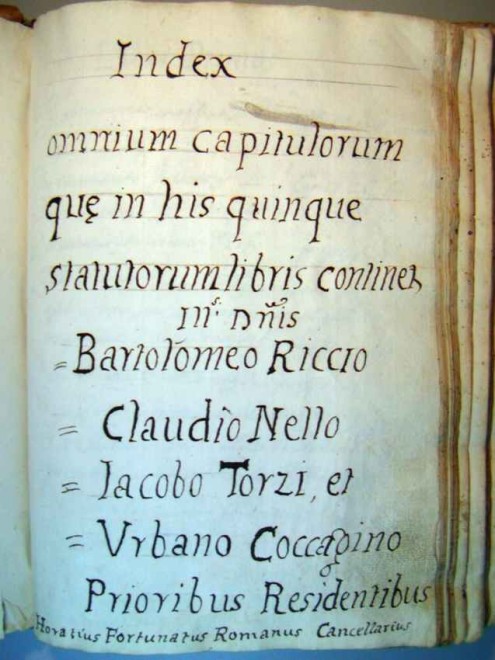 Index
omnium capitulorum
quę in his quinque
statutorum libris continet
Ill.ⁱ Dñis
= Bartolomeo Riccio
= Claudio Nello
= Iacobo Torzi, et
= Vrbano Coccapino
Prioribus Residentibus
Horatius Fortunatus Romanus Cancellarius